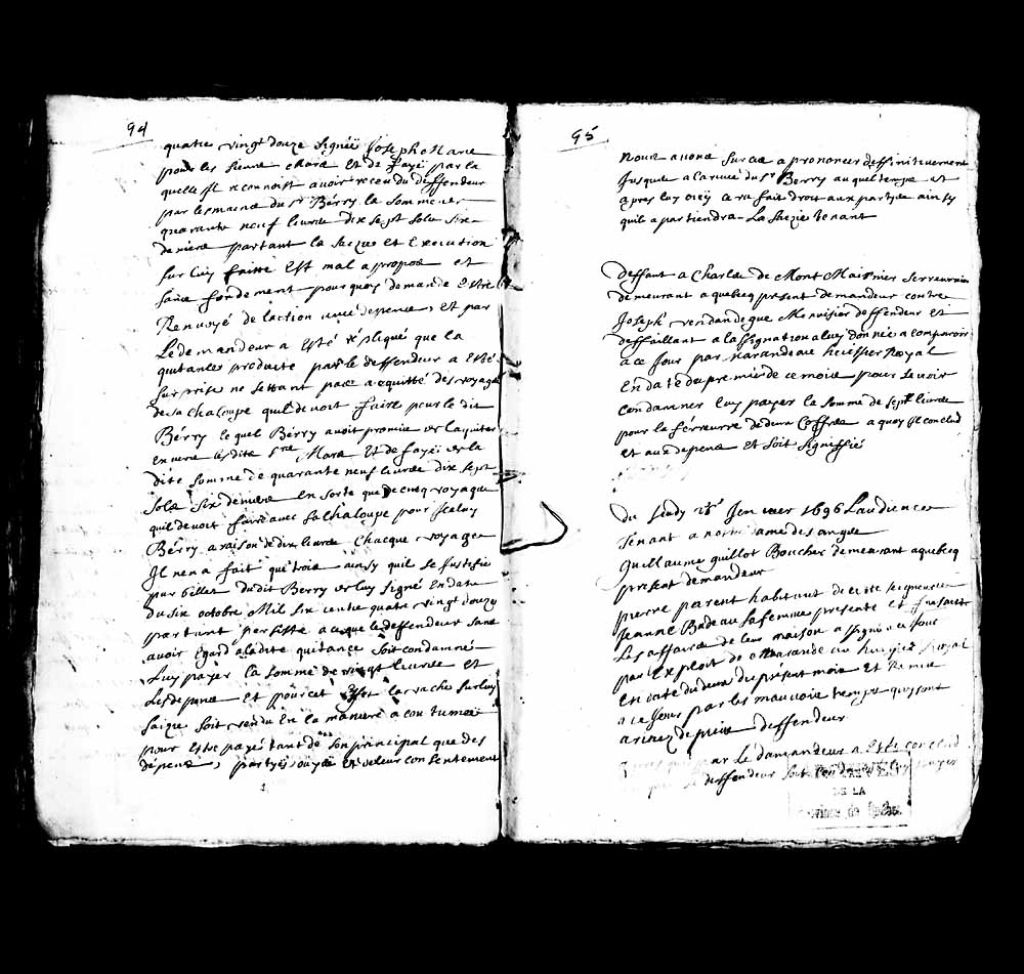 94
quatre vingt douze signée Joseph Mare
pour les sieurs Mara et de fayë par la
quelle Il reconnoist avoir receu du deffendeur
par les mains du Sr Bérry la somme de
quarante neuf livres dix sept sols six
deniers partant la saizie et Execution
sur luy faitte Est mal a propos et
sans fondement pourquoy demande Estre
Renvoyé de laction avec depens, et par
Le demandeur a Esté répliqué que la
quitance producte par le deffendeur a Esté
surprise ne settant pas acquitté des voyage
de sa chaloupe quil devoit faire pour le dit
Bérry lequel Bérry avoit promis de laquiter
envers lesdits srs Mara Et de fayë de la
dite somme de quarante neuf livres dix sept
sols six deniers En sorte que de cinq voyage
quil devoit faire avec sa chaloupe pour Iceluy
Bérry a raison de dix livres Chacque voyage
Il nen a fait que trois ainsy quil se Justifie
par billet dudit Berry de luy signé En date
du six octobre Mil six cents quatre vingt douze
partant persiste a ce que le deffendeur sans
avoir Egard a ladite quitance soit condamné
Luy payer la somme de vingt livres et
Les depens et pour cet Effet la vache sur luy
saizie soit vendu En la maniere acoutumeë
pour Estre payé tant de son principal que des
dépens, partyë ouyë et de leur consentement
95
nous avons surcis a prononcer deffinitivement
Jusques a larivée du Sr Berry auquel temps et
apres luy oüy sera fait droit aux partyes ainsy
quil apartiendra La saizie tenant
deffaut a Charles de Mont Maisnier serrurier
demeurant a quebecq present demandeur contre
Joseph vendandegue Menuisier deffendeur et
deffaillant a lassignation a luy donnée a comparoir
a ce Jour par marandeau huissier Royal
En date du premier de ce mois pour se voir
Condamner luy payer la somme de sept livres
pour la ferrure de deux Coffres a quoy Il conclud
et aux depens Et soit signiffié
Du Jeudy Janvier 1696 Laudience
Tenant a nostre dame des anges
Guillaume guillot Boucher demeurant a quebecq
present demandeur
pierre parent habitant de cette seigneurie
Jeanne Badeau sa femme presente et faisante
Les affaires de leur maison assigné a ce Jour
par Exploit de Marandeau huissier Royal
En date du deux du présent mois Et Remis
a ce Jour par les mauvais temps quy sont
arivez depuis deffendeur
par Le demandeur a Esté conclud
deffendeur soit condamné luy payer
DE LA